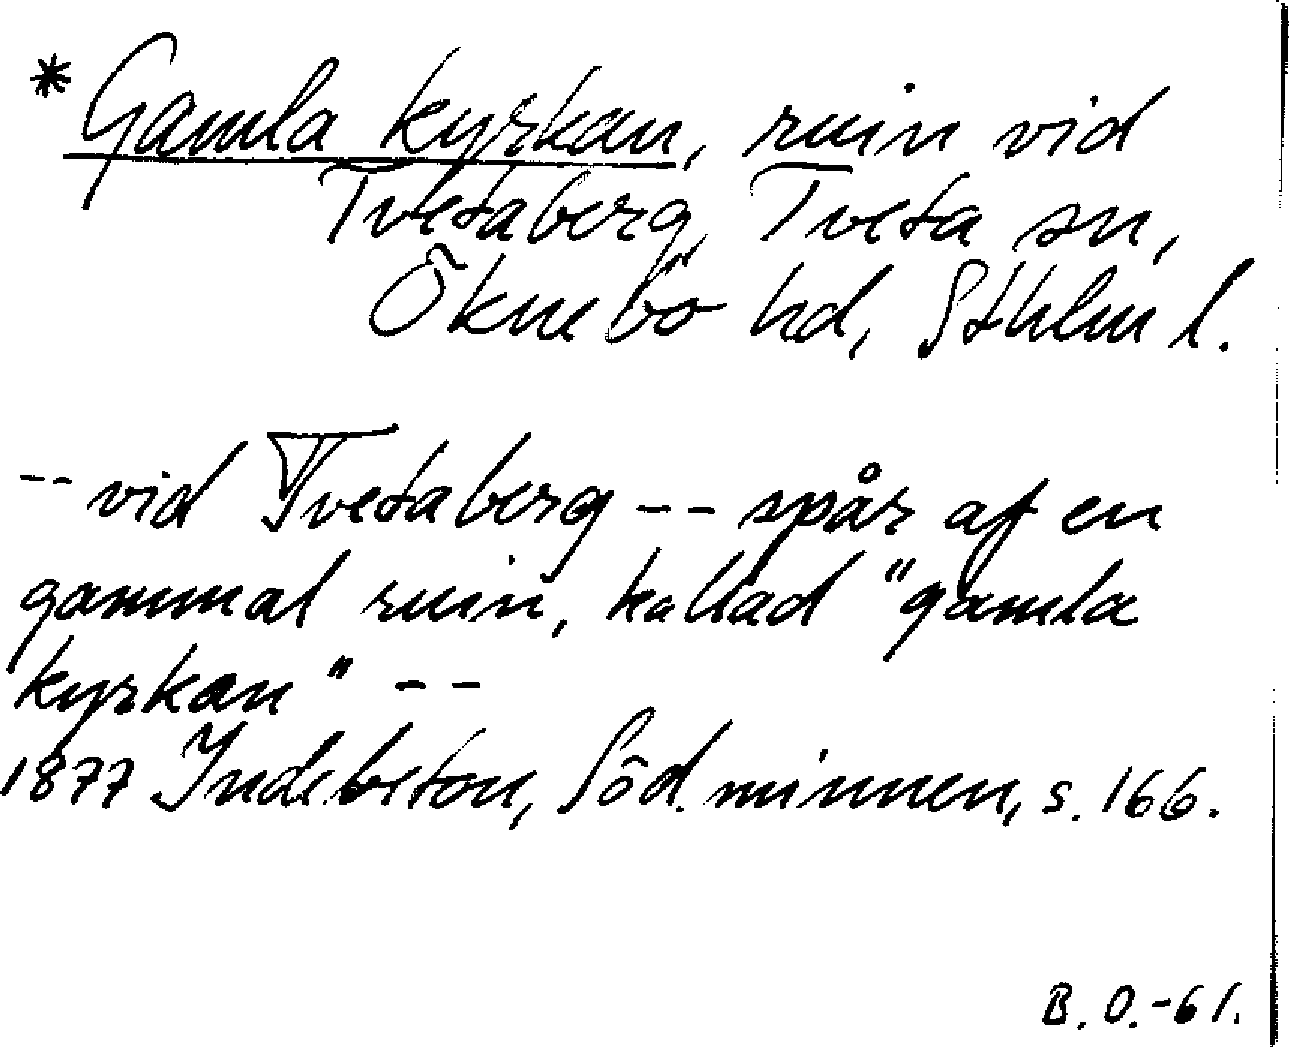 * Gamla kyrkan, ruin vid
Tvetaberg, Tveta sn,
Öknebo hd, Sthlm l.
-- vid Tvetaberg -- spår af en
gammal ruin, kallad "gamla
kyrkan" --
1877 Indebetou, Söd. minnen, s. 166.
B. O. -61.